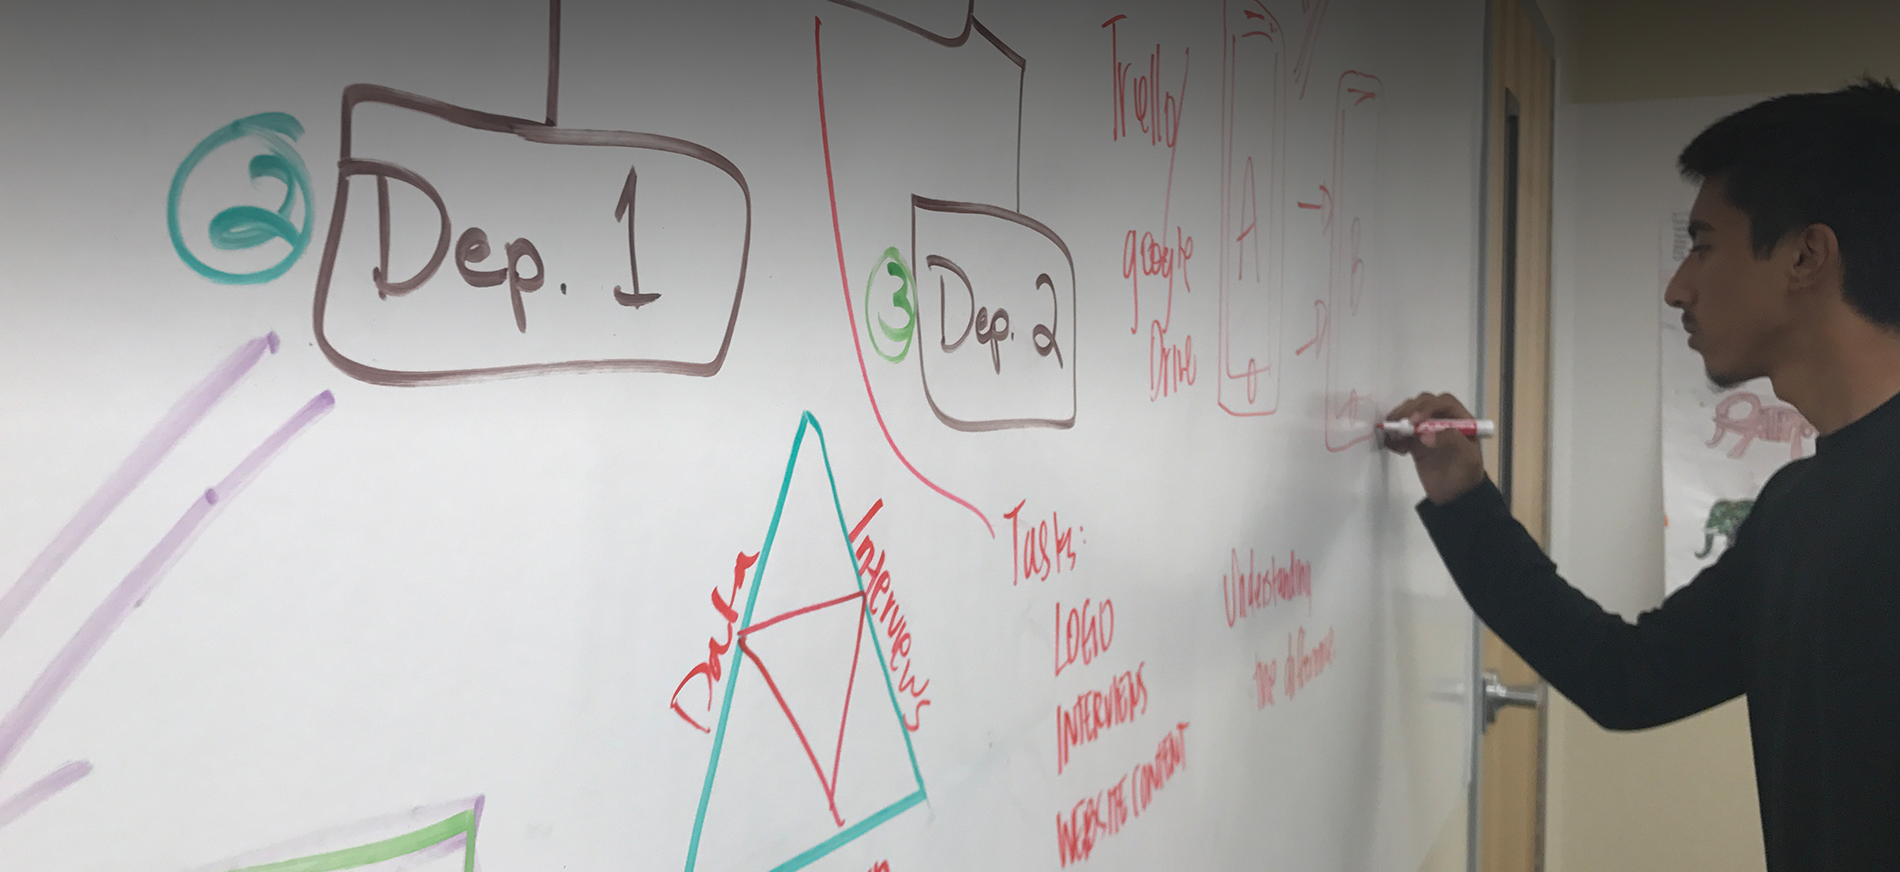 2
Dep. 1
3
Dep. 2
Trello/
google
Drive
A
B
Data
Interviews
Tasks:
LOGO
INTERVIEWS
WEBSITE CONTENT
Understanding